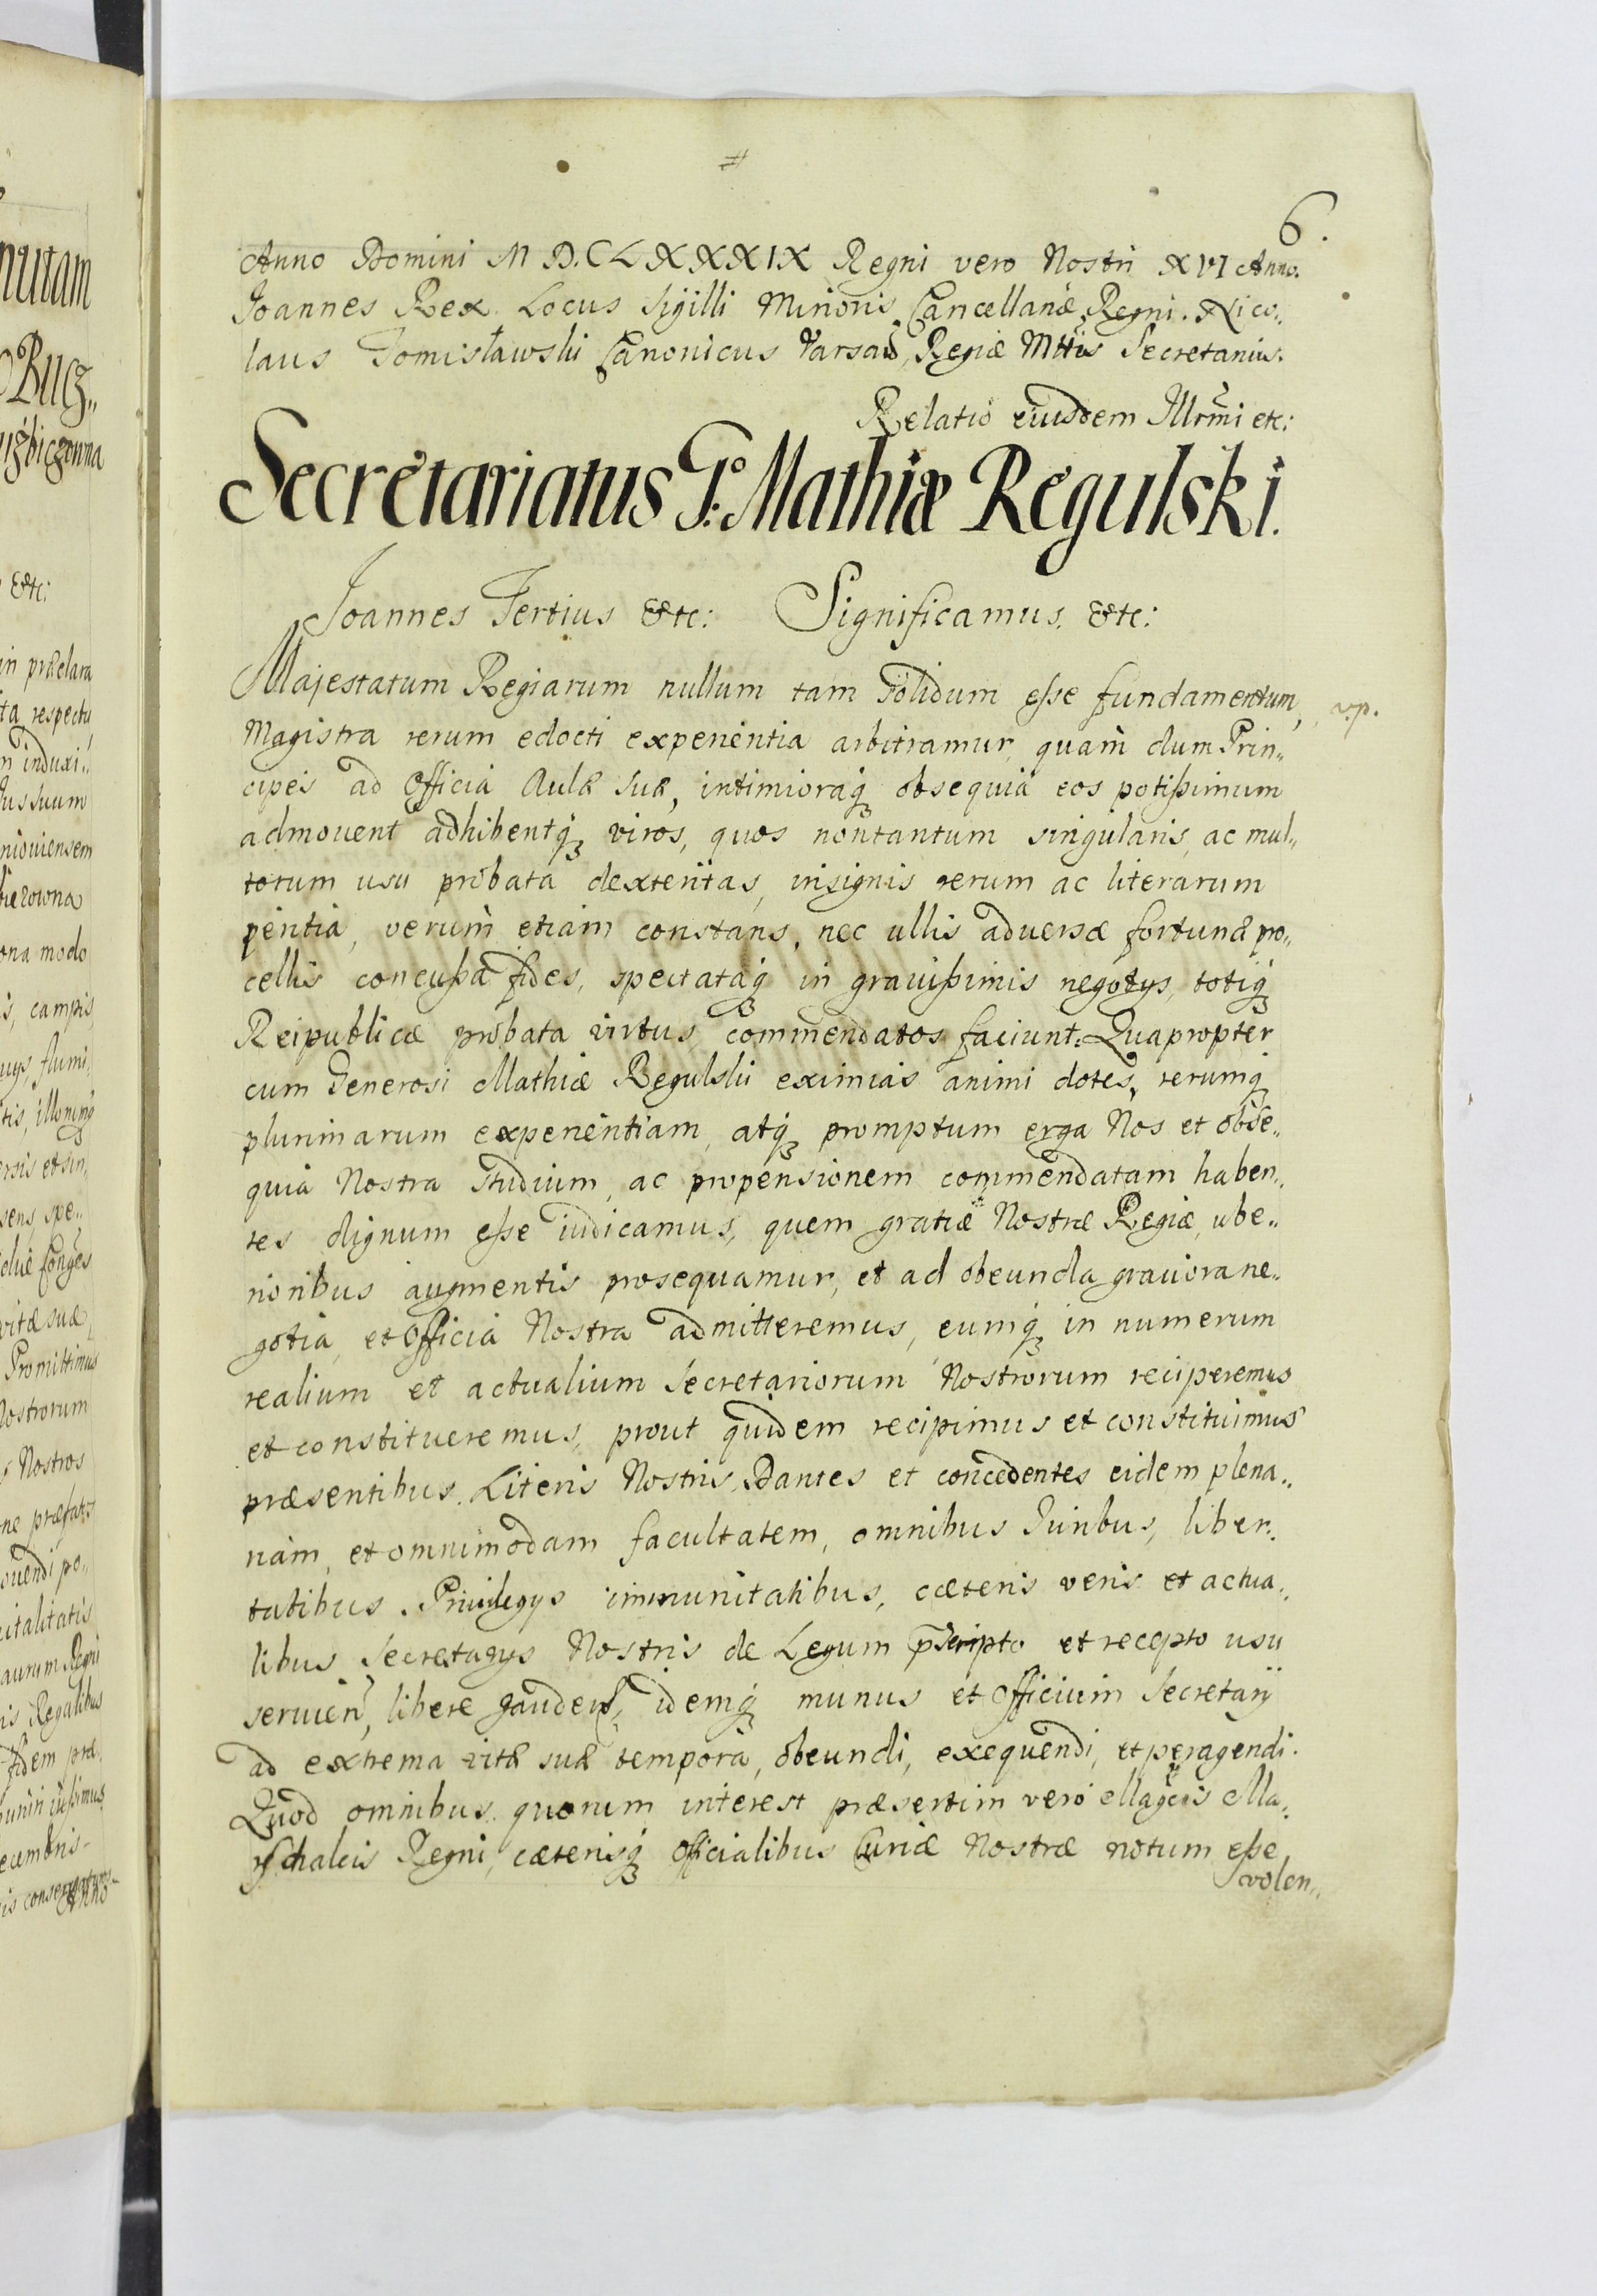 6.
Anno Domini M D.C L X X X I X Regni vero Nostri XVI Anno.
Joannes Rex. Locus Sigilli Minoris Cancellariæ Regni. Nico„
laus Tomisławski Canonicus Varsau, Regiæ Mttis Secretarius.
Relatio eiusdem Illrmi etc:
Secretariatus G: Mathiæ Regulski.
Joannes Tertius &tc: Significamus. &tc:
Majestatum Regiarum nullum tam solidum eße fundamentum,
Magistra rerum edocti experientia arbitramur, quam dum Prin„
cipes ad Officia Aulæ suæ, intimioraq; obsequia eos potißimum
admouent adhibentq; viros, quos nontantum singularis, ac mul„
torum usu probata dexteritas, insignis rerum ac literarum
peritia, verum etiam constans, nec ullis aduersæ fortunæ pro„
cellis concußa fides, spectataq; in grauißimis negotys, totiq;
Reipublicæ probata virtus commendatos faciunt. Quapropter
cum Generosi Mathiæ Regulski eximias animi dotes, rerumq;
plurimarum experientiam, atq; promptum erga Nos et obse„
quia Nostra studium, ac propensionem commendatam haben„
tes dignum eße iudicamus, quem gratiæ Nostræ Regiæ, ube„
rioribus augmentis prosequamur, et ad obeunda grauiora ne„
gotia, et Officia Nostra admitteremus, eumq; in numerum
realium et actualium Secretariorum Nostrorum reciperemus
et constitueremus, prout quidem recipimus et constituimus
præsentibus. Literis Nostris. Dantes et concedentes eidem plena„
riam, et omnimodam facultatem, omnibus Iuribus, liber„
tatibus. Priuilegys immunitatibus, cæteris veris et actua„
libus Secretarys Nostris de Legum pscripto et recepto usu
seruien, libere gauden, idemq; munus et Officium Secretarÿ
ad extrema vitæ suæ tempora, obeundi, exequendi, et peragendi.
Quod omnibus. quorum interest præsertim vero Magcis Ma„
rschalcis Regni, cæterisq; Officialibus Curiæ Nostræ notum eße
volen„